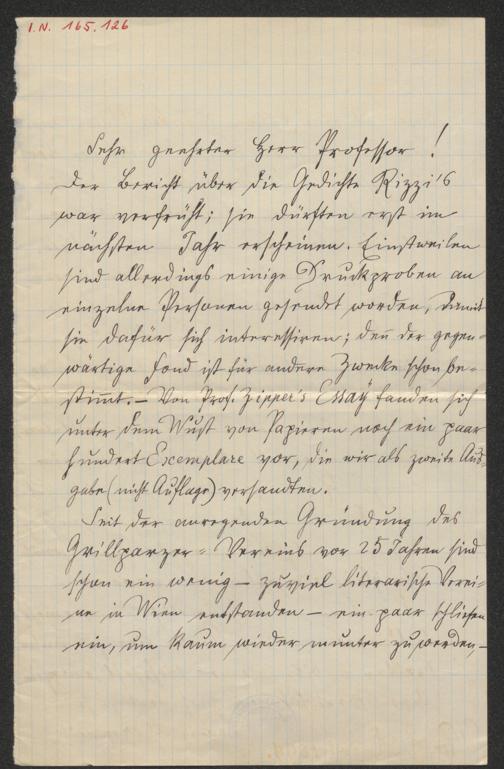 I.N. 165.126
Sehr geehrter Herr Professor!
Der Bericht über die Gedichte Rizzi's
war verfrüht; sie dürften erst im
nächsten Jahr erscheinen. Einstweilen
sind allerdings einige Druckproben an
einzelne Personen gesendet worden, damit
sie dafür sich interessiren; den̄ der gegen-
wärtige Fond ist für andere Zwecke schon be-
stim̄t. – Von Prof. Zipper's Essay fanden sich
unter dem Wust von Papieren noch ein paar
hundert Exemplare vor, die wir als zweite Aus-
gabe (nicht Auflage) versandten.
Seit der anregenden Gründung des
Grillparzer-Vereins vor 25 Jahren sind
schon ein wenig – zuviel literarische Verei-
ne in Wien entstanden – ein paar schliefen
ein, um kaum wieder munter zu werden, –